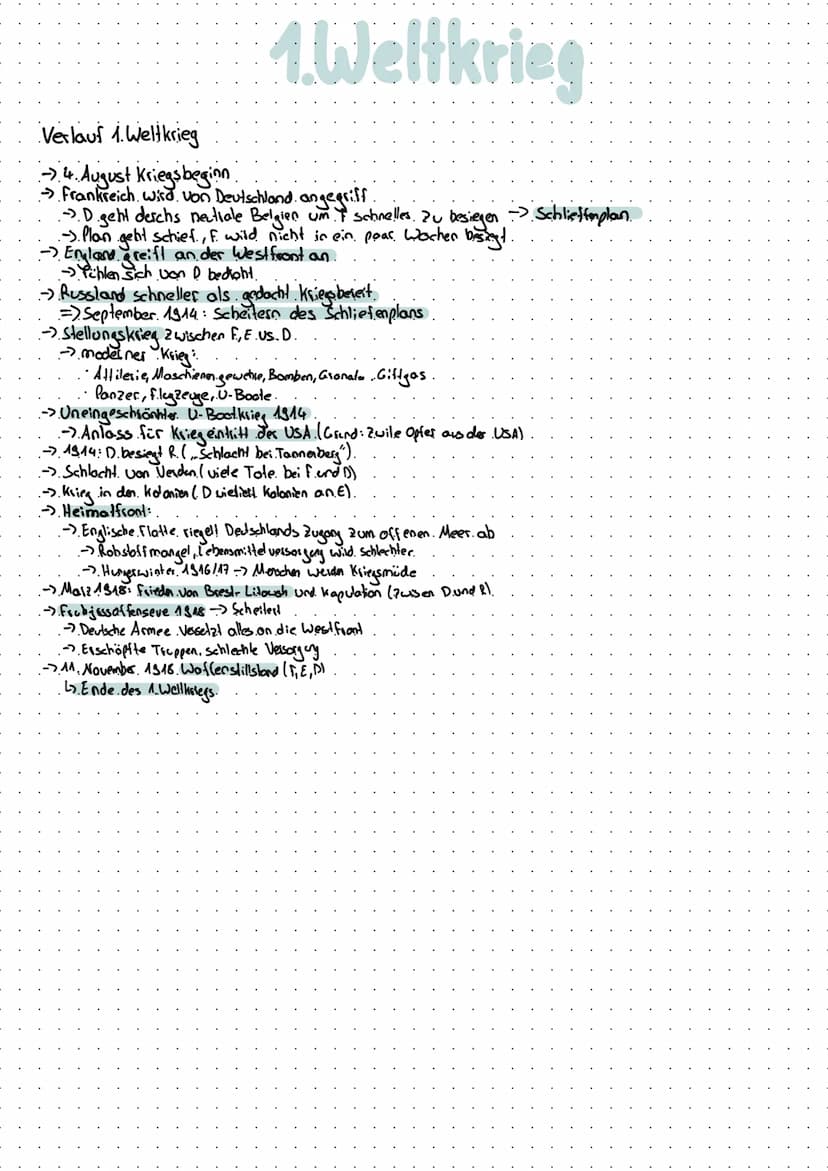 1.Weltkrieg
Verlauf 1.Weltkrieg
→ 4. August Kriegsbeginn
→ Frankreich wird von Deutschland angegriff
→ D geht derchs neutrale Belgien um F schneller zu besiegen → Schlieffenplan
→ Plan geht schief, F. wird nicht in ein paar Wochen besiegt.
→ England greift an der Westfront an
→ Fühlen sich von D bedroht
→ Russland schneller als gedacht Kriegsbereit
⇒ September 1914: Scheitern des Schliefenplans
→ Stellungskrieg zwischen F, E vs. D
→ moderner "Krieg":
· Attilerie, Maschienengewehre, Bomben, Granate, Giftgas
· Panzer, Flugzeuge, U-Boote
→ Uneingeschränkter U-Bootkrieg 1914
→ Anlass für Kriegeintritt der USA (Grund: Zivile Opfer aus der USA)
→ 1914: D besiegt R. („Schlacht bei Tannenberg")
→ Schlacht von Verdun (viele Tote bei F und D)
→ Krieg in den Kolonien (D verliert Kolonien an E)
→ Heimatfront:
→ Englische Flotte riegelt Deutschlands Zugang zum offenen Meer ab
→ Rohstoffmangel, Lebensmittelversorgung wird schlechter
→ Hungerswinter 1916/17 → Menschen werden Kriegsmüde
→ März 1918: Frieden von Brest-Litowsk und Kapulation (zwisen D und R)
→ 1918 → Scheitert
→ Deutsche Armee Versetzt alles an die Westfront
→ Erschöpfte Truppen, schlechte Versorgung
→ 11. November 1918 Waffenstillstand (F, E, D)
↳ Ende des 1. Weltkriegs